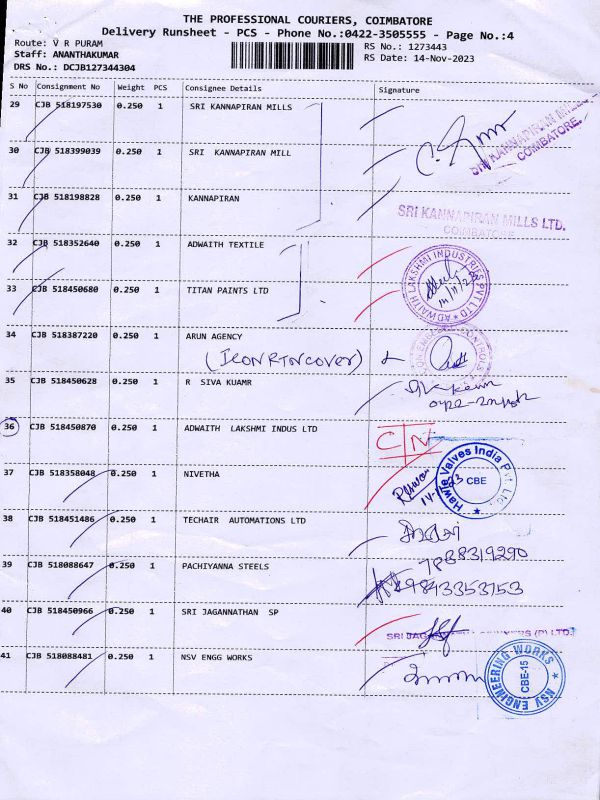 THE PROFESSIONAL COURIERS, COIMBATORE
Delivery Runsheet - PCS - Phone No.:0422-3505555 - Page No.:4
Route: V R PURAM
RS No.: 1273443
Staff: ANANTHAKUMAR
RS Date: 14-Nov-2023
DRS No.: DCJB127344304
S No Consignment No Weight PCS Consignee Details Signature
29 CJB 518197530 0.250 1 SRI KANNAPIRAN MILLS
SRI KANNAPIRAN MILLS
COIMBATORE.
30 CJB 518399039 0.250 1 SRI KANNAPIRAN MILL
31 CJB 518198828 0.250 1 KANNAPIRAN
SRI KANNAPIRAN MILLS LTD.
COIMBATORE
32 CJB 518352640 0.250 1 ADWAITH TEXTILE
ADWAITH LAKSHMI INDUSTRIES PVT LTD
33 CJB 518450680 0.250 1 TITAN PAINTS LTD
34 CJB 518387220 0.250 1 ARUN AGENCY
35 CJB 518450628 0.250 1 R SIVA KUAMR
36 CJB 518450870 0.250 1 ADWAITH LAKSHMI INDUS LTD
CN
37 CJB 518358048 0.250 1 NIVETHA
Hawle Valves India Pvt. Ltd.
CBE
38 CJB 518451486 0.250 1 TECHAIR AUTOMATIONS LTD
39 CJB 518088647 0.250 1 PACHIYANNA STEELS
9843353153
40 CJB 518450966 0.250 1 SRI JAGANNATHAN SP
41 CJB 518088481 0.250 1 NSV ENGG WORKS
NSV ENGINEERING WORKS
CBE-15